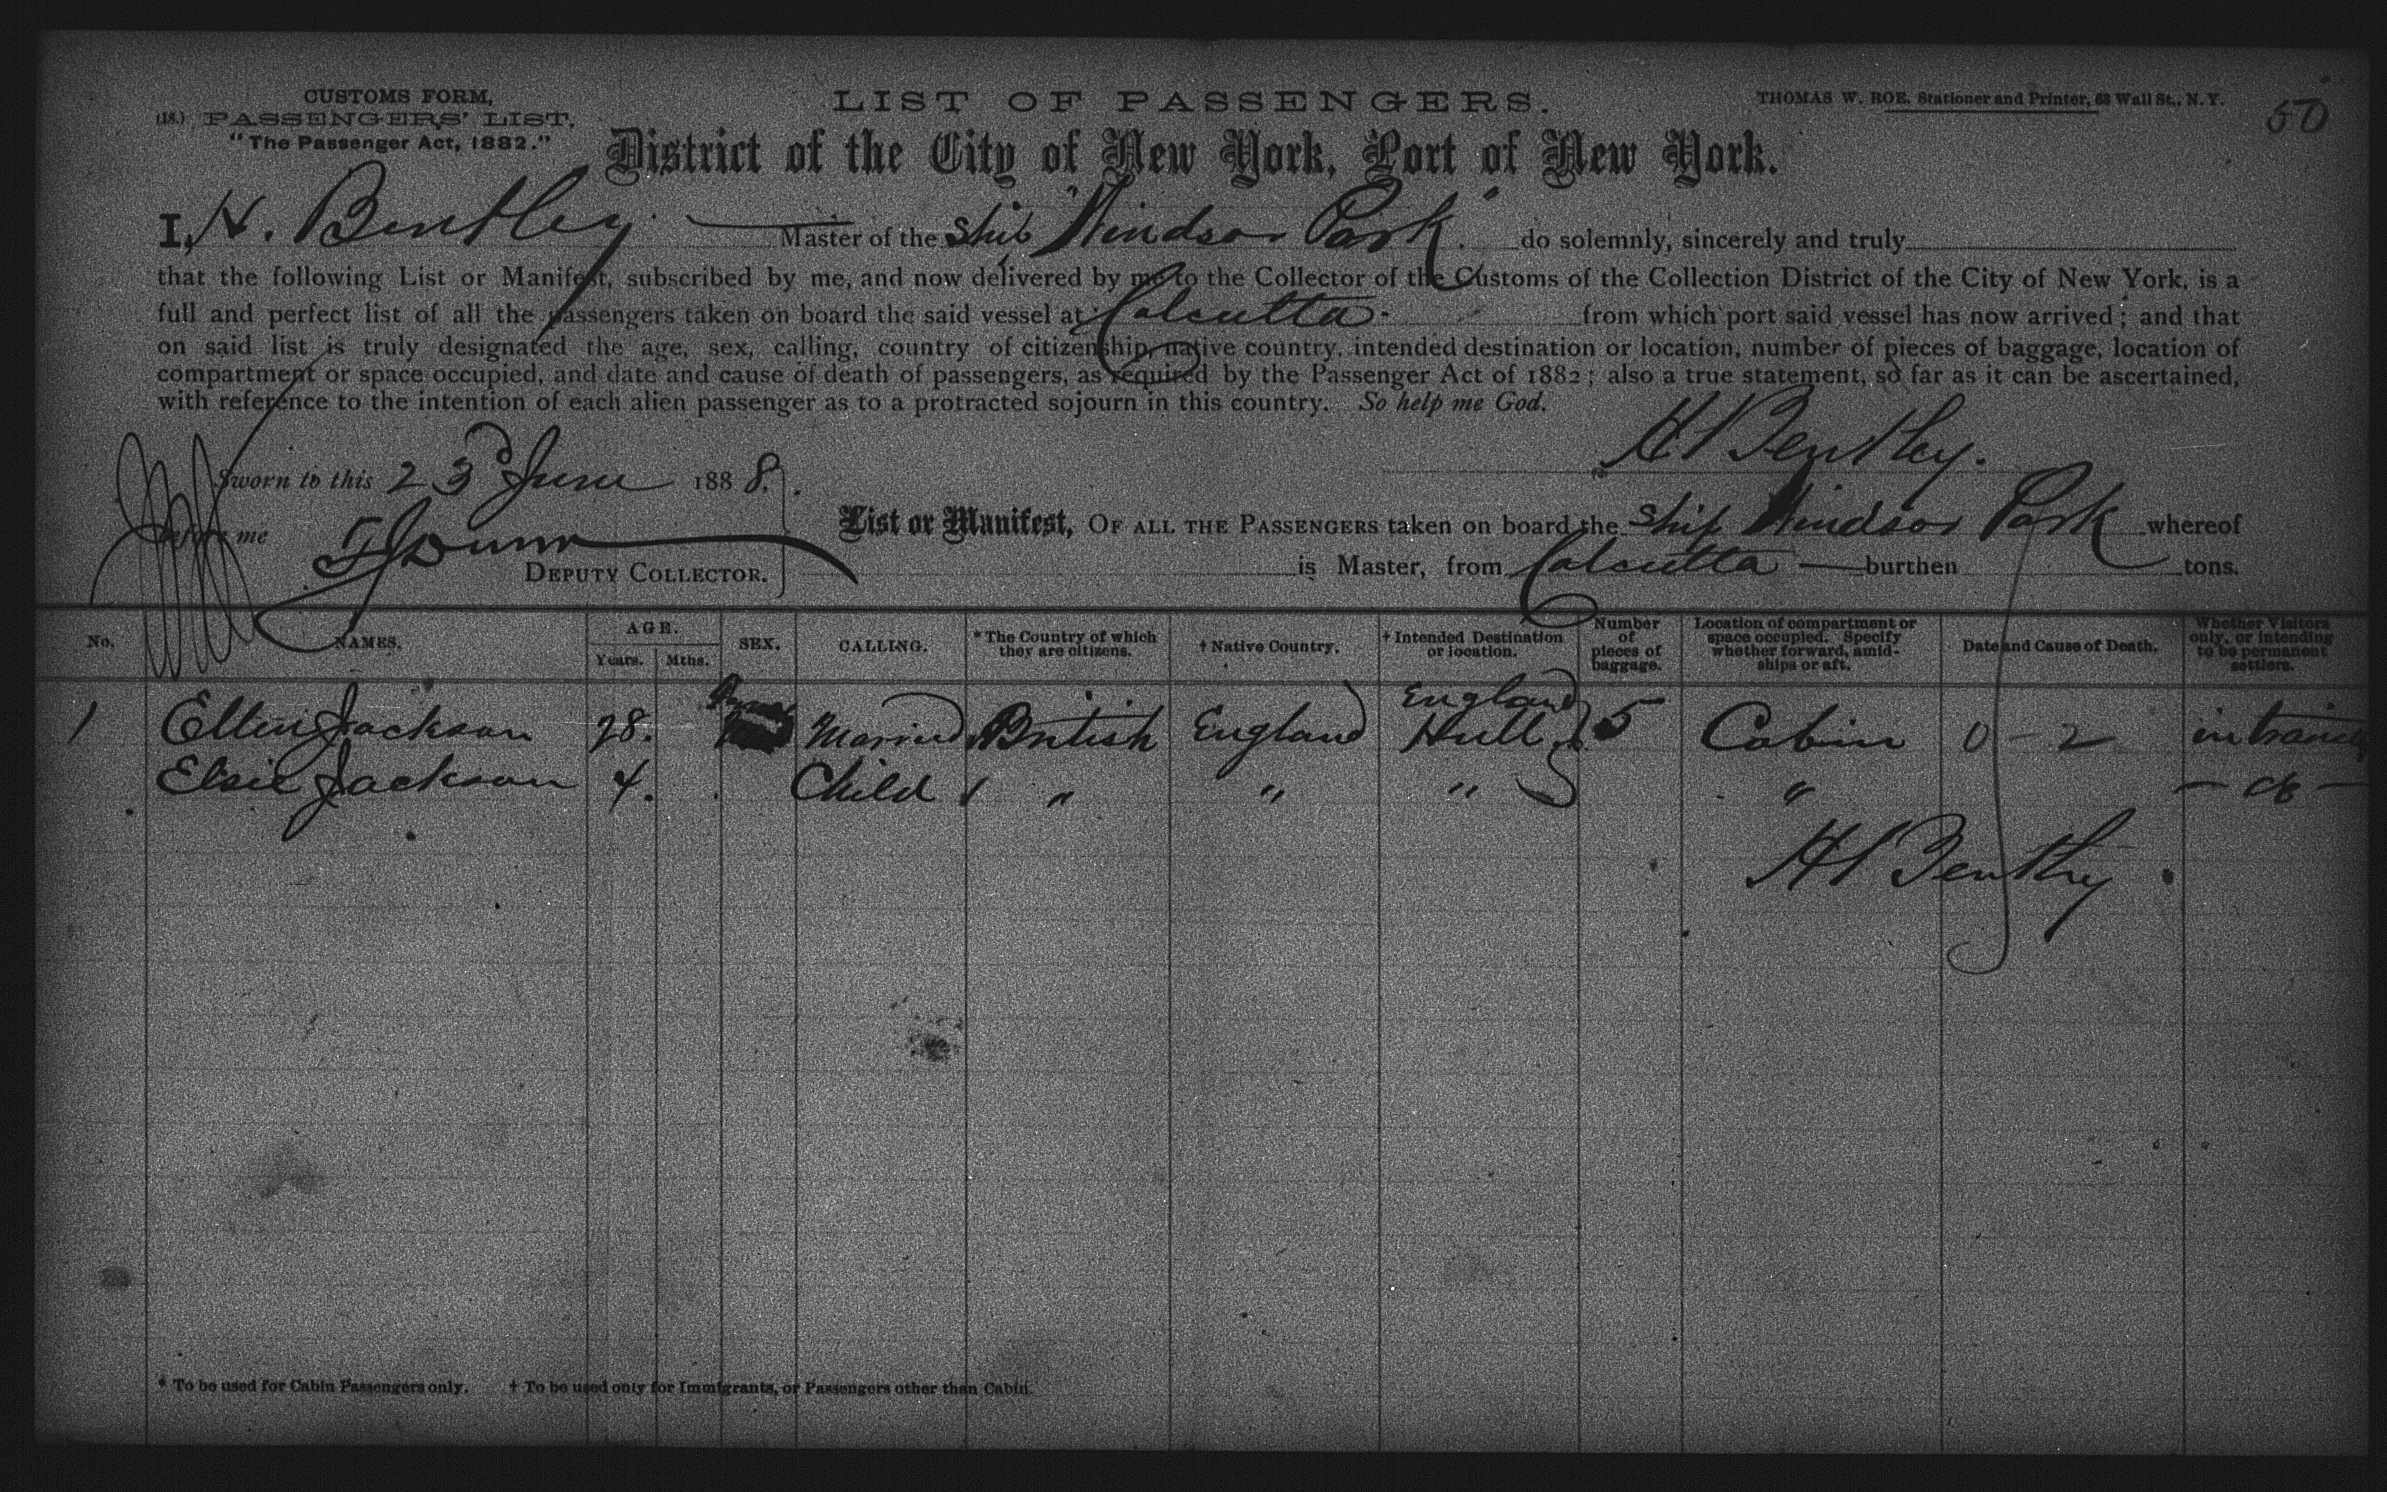 CUSTOMS FORM,
(18.) PASSENGERS' LIST,
"The Passenger Act, 1882."
LIST OF PASSENGERS.
THOMAS W. ROE, Stationer and Printer, 63 Wall St., N. Y.
50
District of the City of New York, Port of New York.
I, H. Bentley Master of the Ship "Windsor Park" do solemnly, sincerely and truly
that the following List or Manifest, subscribed by me, and now delivered by me to the Collector of the Customs of the Collection District of the City of New York, is a
full and perfect list of all the passengers taken on board the said vessel at Calcutta from which port said vessel has now arrived; and that
on said list is truly designated the age, sex, calling, country of citizenship, native country, intended destination or location, number of pieces of baggage, location of
compartment or space occupied, and date and cause of death of passengers, as required by the Passenger Act of 1882; also a true statement, so far as it can be ascertained,
with reference to the intention of each alien passenger as to a protracted sojourn in this country. So help me God.
H Bentley.
Sworn to this 23d June 1888.
before me
DEPUTY COLLECTOR.
List or Manifest, OF ALL THE PASSENGERS taken on board the Ship Windsor Park whereof
is Master, from Calcutta burthen tons.
No. NAMES. AGE. Years. Mths. SEX. CALLING. * The Country of which they are citizens. † Native Country. † Intended Destination or location. Number of pieces of baggage. Location of compartment or space occupied. Specify whether forward, amidships or aft. Date and Cause of Death. Whether Visitors only, or intending to be permanent settlers.
1 Ellen Jackson 28. Married British England England Hull 5 Cabin 0 - 2 in transit
Elsie Jackson 4. Child " " " " - do -
H Bentley
* To be used for Cabin Passengers only. † To be used only for Immigrants, or Passengers other than Cabin.